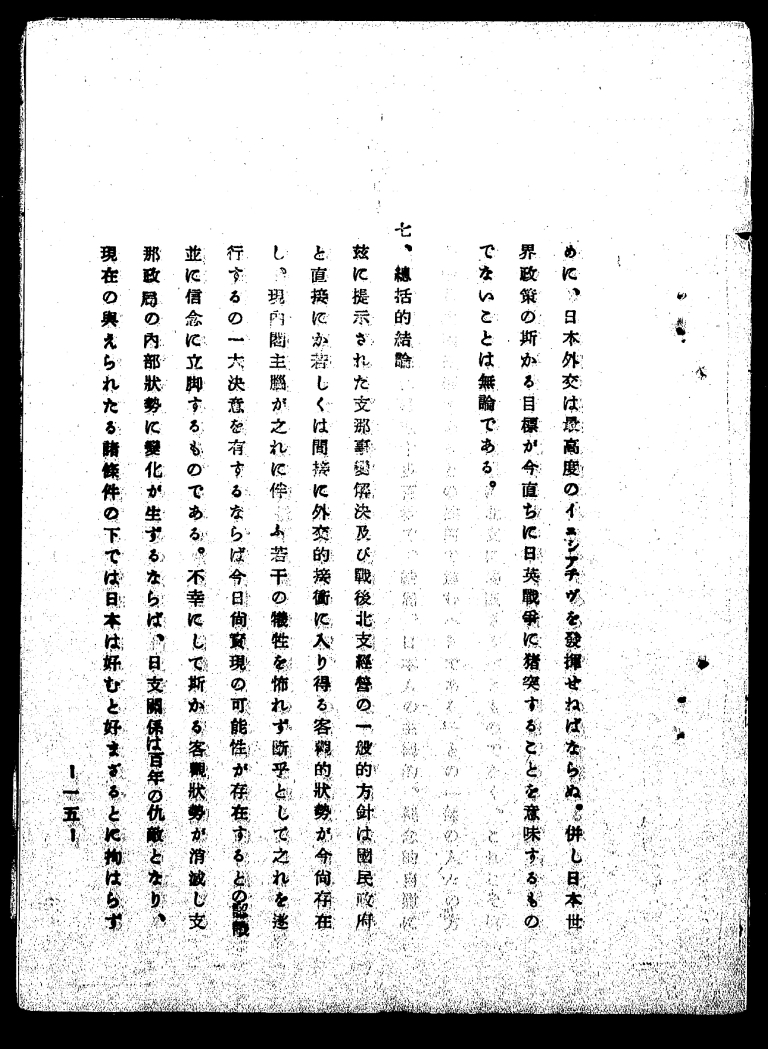 めに、日本外交は最高度のイニシアチヴを發揮せねばならぬ。併し日本世
界政策の斯かる目標が今直ちに日英戰爭に猪突することを意味するもの
でないことは無論である。
七、總括的結論
玆に提示された支那事變解決及び戰後北支經營の一般的方針は國民政府
と直接にか若しくは間接に外交的接衝に入り得る客觀的狀勢が今尙存在
し、現內閣主腦が之れに伴ふ若干の犧牲を怖れず斷乎として之れを遂
行するの一大決意を有するならば今日尙實現の可能性が存在するとの認識
並に信念に立脚するものである。不幸にして斯かる客觀狀勢が消滅し支
那政局の內部狀勢に變化が生ずるならば、日支關係は百年の仇敵となり、
現在の與えられたる諸條件の下では日本は好むと好まざるとに拘はらず
ー一五ー